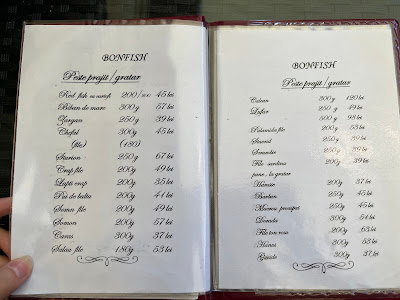 BONFISH
Peste prajit/gratar
Red fish cu sump 200/100 45 lei
Biban de mare 300g 57 lei
Zargan 250g 39 lei
Chefal 300g 45 lei
(file) (180)
Starion 250g 67 lei
Crap file 200g 49 lei
Lapti crap 200g 35 lei
Pui de balta 200g 41 lei
Somn file 200g 49 lei
Somon 200g 57 lei
Caras 300g 37 lei
Salau file 180g 53 lei
BONFISH
Peste prajit/gratar
Calcan 300g 120 lei
Lufar 250g 49 lei
500g 98 lei
Palamida file 200g 53 lei
Stavrid 250g 39 lei
Scrumbie 250g 39 lei
File sardina 200g 39 lei
pane, la gratar
Hamsie 200g 37 lei
Barbun 250g 45 lei
Macrou proaspat 250g 45 lei
Dorada 300g 51 lei
File ton rosu 200g 63 lei
Hanos 200g 53 lei
Guvide 300g 37 lei